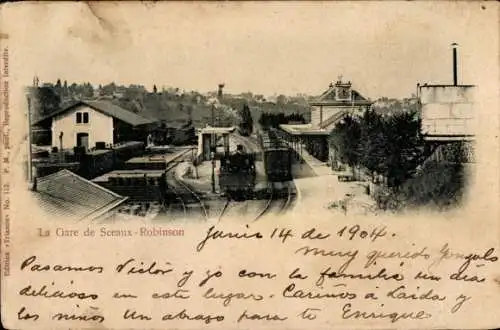 La Gare de Sceaux-Robinson
Junio 14 de 1904.
muy querido Gonzalo
Pasamos Victor y yo con la familia un día
delicioso en este lugar. Cariños a Laida y
los niños un abrazo para te Enrique
Edition «Trianon» No. 113. P. M., phot. Reproduction Interdite.